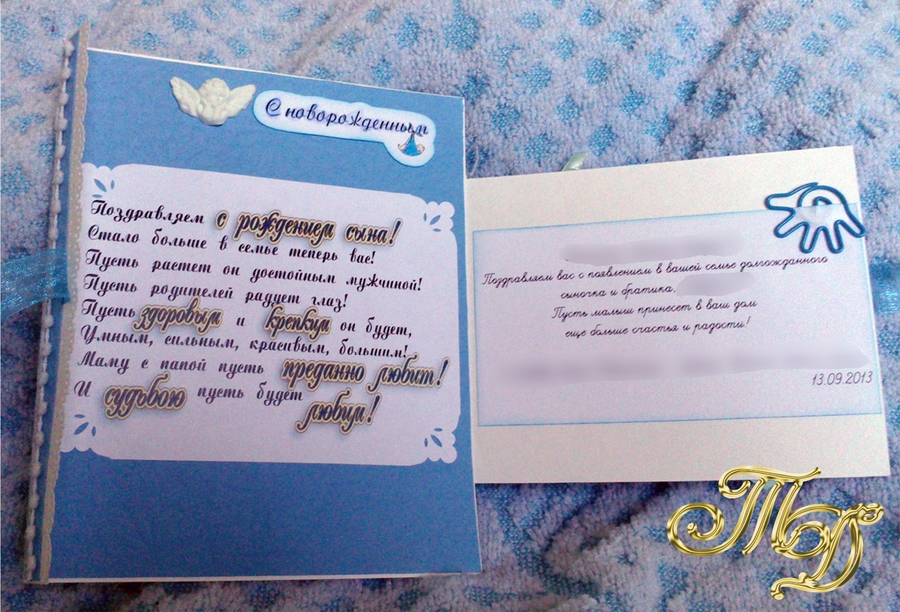 С новорожденным
Поздравляем с рождением сына!
Стало больше в семье теперь вас!
Пусть растет он достойным мужчиной!
Пусть родителей радует глаз!
Пусть здоровым и крепким он будет,
Умным, сильным, красивым, большим!
Маму с папой пусть преданно любит!
И судьбою пусть будет любим!
Поздравляем вас с появлением в вашей семье долгожданного
сыночка и братика,
Пусть малыш принесет в ваш дом
еще больше счастья и радости!
13.09.2013
ТД